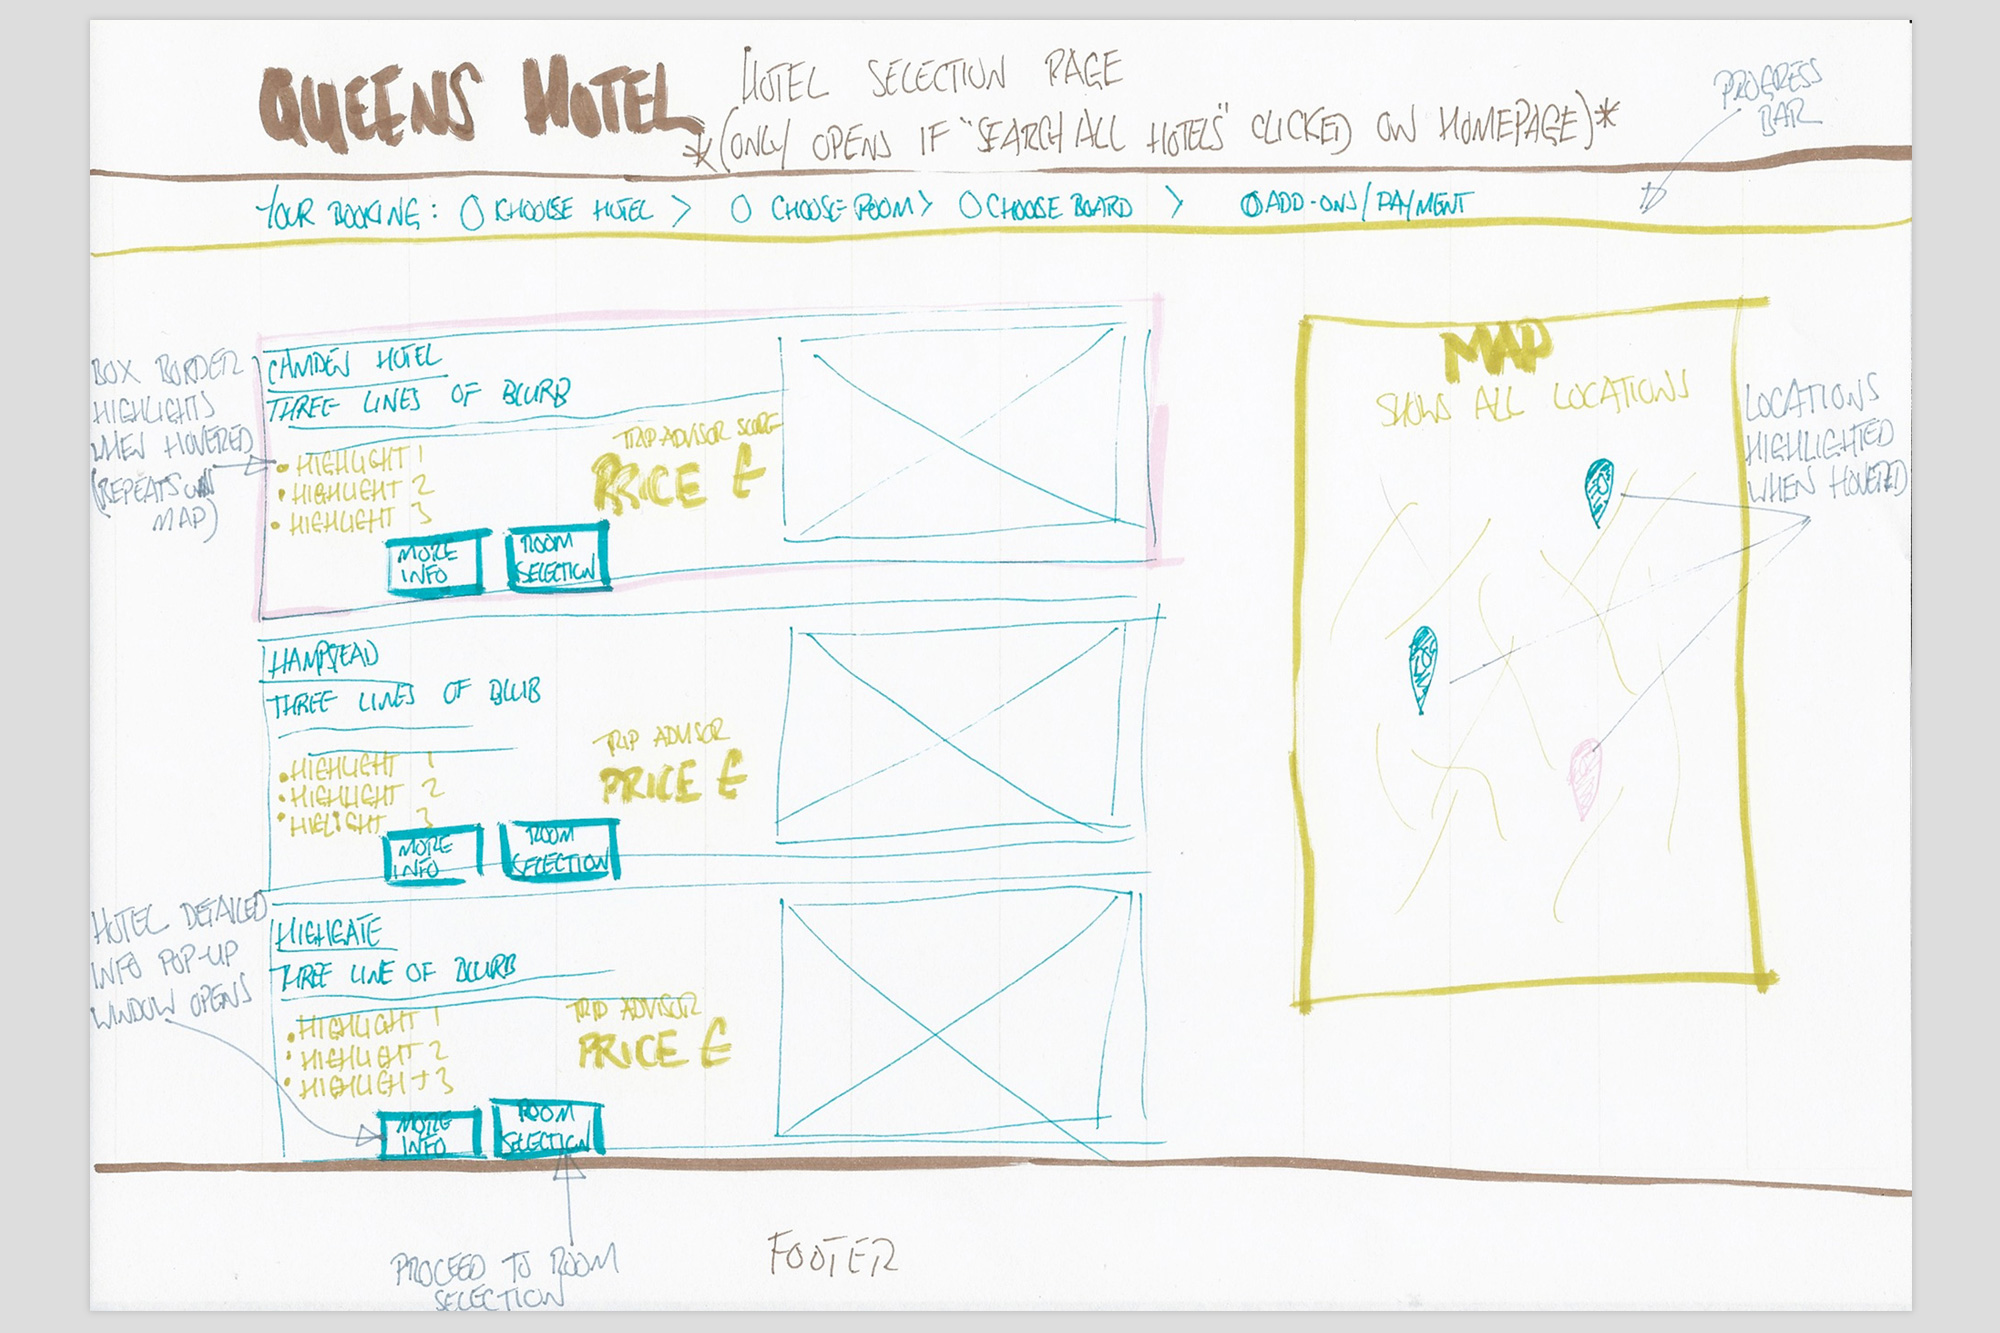 QUEENS HOTEL
HOTEL SELECTION PAGE
*(ONLY OPENS IF "SEARCH ALL HOTELS" CLICKED ON HOMEPAGE)*
PROGRESS
BAR
YOUR BOOKING: CHOOSE HOTEL > CHOOSE ROOM > CHOOSE BOARD > ADD-ONS/PAYMENT
BOX BORDER
HIGHLIGHTS
WHEN HOVERED
(REPEATS ON
MAP)
CAMDEN HOTEL
THREE LINES OF BLURB
• HIGHLIGHT 1
• HIGHLIGHT 2
• HIGHLIGHT 3
TRIP ADVISOR SCORE
PRICE £
MORE
INFO
ROOM
SELECTION
MAP
SHOWS ALL LOCATIONS
LOCATIONS
HIGHLIGHTED
WHEN HOVERED
HAMPSTEAD
THREE LINES OF BLUB
• HIGHLIGHT 1
• HIGHLIGHT 2
• HIGLIGHT 3
TRIP ADVISOR
PRICE £
MORE
INFO
ROOM
SELECTION
HOTEL DETAILED
INFO POP-UP
WINDOW OPENS
HIGHGATE
THREE LINE OF BLURB
• HIGHLIGHT 1
• HIGHLIGHT 2
• HIGHLIGHT 3
TRIP ADVISOR
PRICE £
MORE
INFO
ROOM
SELECTION
PROCEED TO ROOM
SELECTION
FOOTER